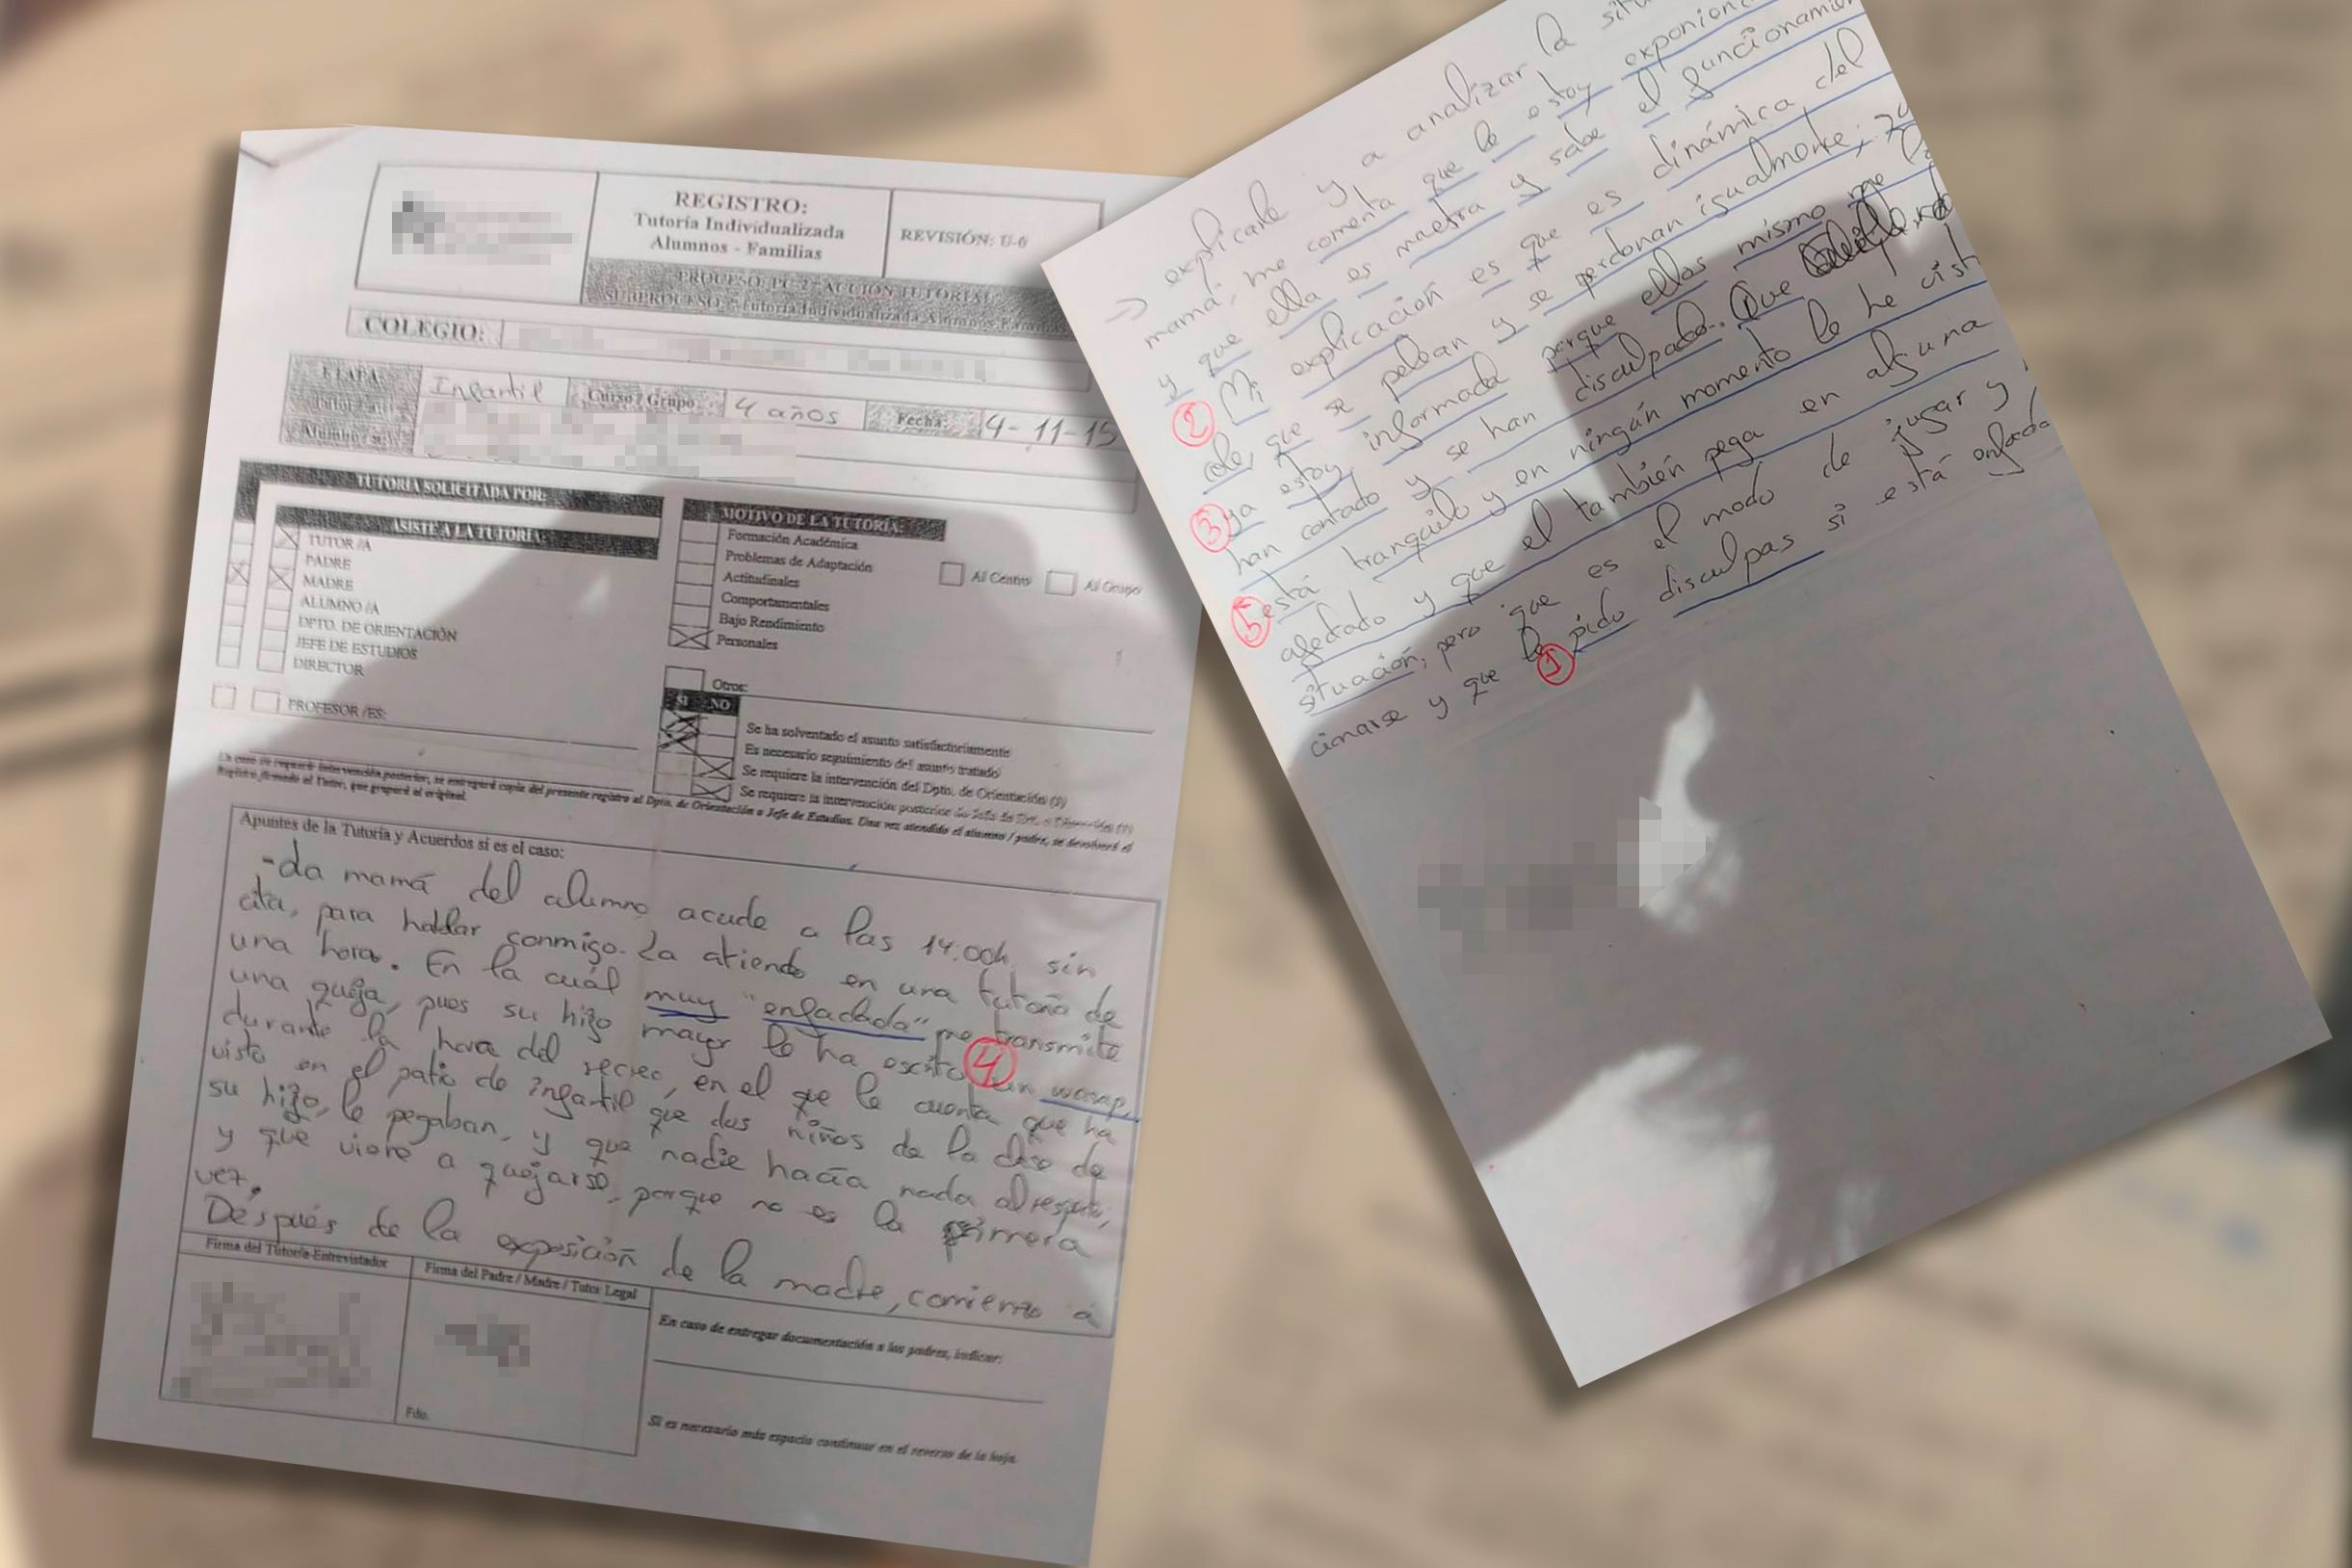 REGISTRO:
Tutoría Individualizada
Alumnos - Familias
REVISIÓN: U-0
PROCESO: PC 2 - ACCIÓN TUTORIAL
SUBPROCESO: Tutoría Individualizada Alumnos-Familias
COLEGIO:
ETAPA: Infantil Curso / Grupo 4 años Fecha: 4-11-15
Tutor / a:
Alumno / a:
TUTORÍA SOLICITADA POR:
ASISTE A LA TUTORÍA:
TUTOR /A
PADRE
MADRE
ALUMNO /A
DPTO. DE ORIENTACIÓN
JEFE DE ESTUDIOS
DIRECTOR
PROFESOR /ES:
MOTIVO DE LA TUTORÍA:
Formación Académica
Problemas de Adaptación Al Centro Al Grupo
Actitudinales
Comportamentales
Bajo Rendimiento
Personales
Otros:
SI NO
Se ha solventado el asunto satisfactoriamente
Es necesario seguimiento del asunto tratado
Se requiere la intervención del Dpto. de Orientación (1)
Se requiere la intervención posterior
En caso de requerir intervención posterior, se entregará copia del presente registro al Dpto. de Orientación o Jefe de Estudios. Una vez atendido el alumno / padre, se devolverá el
Registro firmado al Tutor, que grapará al original.
Apuntes de la Tutoría y Acuerdos si es el caso:
-La mamá del alumno acude a las 14:00h sin
cita, para hablar conmigo. La atiendo en una tutoría de
una hora. En la cuál muy "enfadada" me transmite
una queja, pues su hijo mayor le ha escrito 4 un wasap,
durante la hora del recreo, en el que le cuenta que ha
visto en el patio de infantil que dos niños de la clase de
su hijo, le pegaban, y que nadie hacía nada al respecto,
y que viene a quejarse, porque no es la primera
vez.
Después de la exposición de la madre, comienzo a
Firma del Tutor/a-Entrevistador
Firma del Padre / Madre / Tutor Legal
Fdo.
En caso de entregar documentación a los padres, indicar:
Si es necesario más espacio continuar en el reverso de la hoja.
→ explicarle y a analizar la
mamá, me comenta que le estoy
y que ella es maestra y sabe el
2 Mi explicación es que es dinámica del
cole, que se pelean y se perdonan igualmente;
3 ya estoy informada porque ellos mismo me
han contado y se han disculpado. Que
5 está tranquilo y en ningún momento le he
afectado y que el también pega en alguna
situación, pero que es el modo de jugar y
cionarse y que le 1 pido disculpas si está